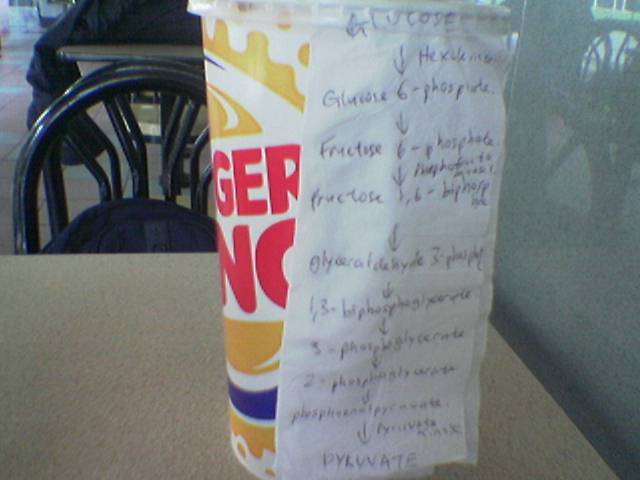 GER
NG
GLUCOSE
↓ Hexokinase
Glucose 6-phosphate.
↓
Fructose 6-phosphate.
↓ Phosphofructo
kinase
fructose 1,6-biphosp
hate
↓
glyceraldehyde 3-phospht
↓
1,3-biphosphoglycerate
↓
3-phosphoglycerate
↓
2-phosphoglycerate
↓
phosphoenolpyruvate.
↓ Pyruvate
kinase
PYRUVATE